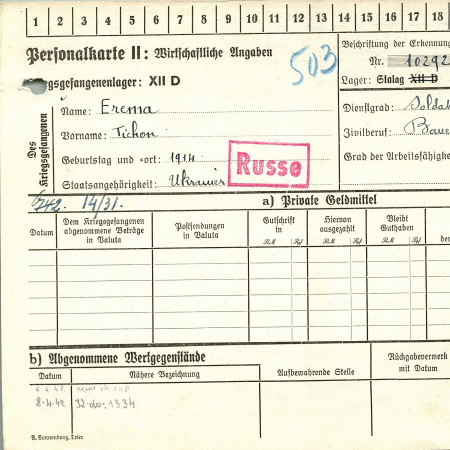 1 2 3 4 5 6 7 8 9 10 11 12 13 14 15 16 17 18
Personalkarte II: Wirtschaftliche Angaben
503
Kriegsgefangenenlager: XII D
Beschriftung der Erkennung
Nr. 10292
Lager: Stalag XII D
Des Kriegsgefangenen
Name: Erema
Vorname: Tichon
Geburtstag und -ort: 1914
Staatsangehörigkeit: Ukrainer
Russe
Dienstgrad: Soldat
Zivilberuf: Baue
Grad der Arbeitsfähigke
742. 14/31.
a) Private Geldmittel
Datum
Dem Kriegsgefangenen abgenommene Beträge in Valuta
Postsendungen in Valuta
Gutschrift in
RM Rpf
Hiervon ausgezahlt
RM Rpf
Bleibt Guthaben
RM Rpf
der
b) Abgenommene Wertgegenstände
Datum
Nähere Bezeichnung
Aufbewahrende Stelle
Rückgabevermerk mit Datum
8.4.42 1334
A. Sonnenburg, Trier